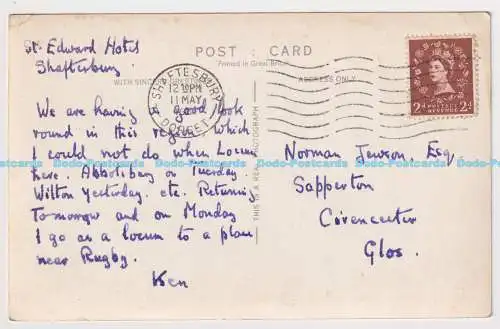 St. Edward Hotel
Shaftesbury
POST CARD
Printed in Great Britain
WITH SINCERE
ADDRESS ONLY
SHAFTESBURY
12 PM
11 MAY
DORSET
POSTAGE
REVENUE
2d 2d
We are having a good look
round in this region which
I could not do when Locum
here. Abbotsbury on Tuesday
Wilton Yesterday. etc. Returning
Tomorrow and on Monday
I go as a locum to a place
near Rugby.
Ken
THIS IS A REAL PHOTOGRAPH
Norman Jewson, Esq
Sapperton
Cirencester
Glos.
Dodo-Postcards